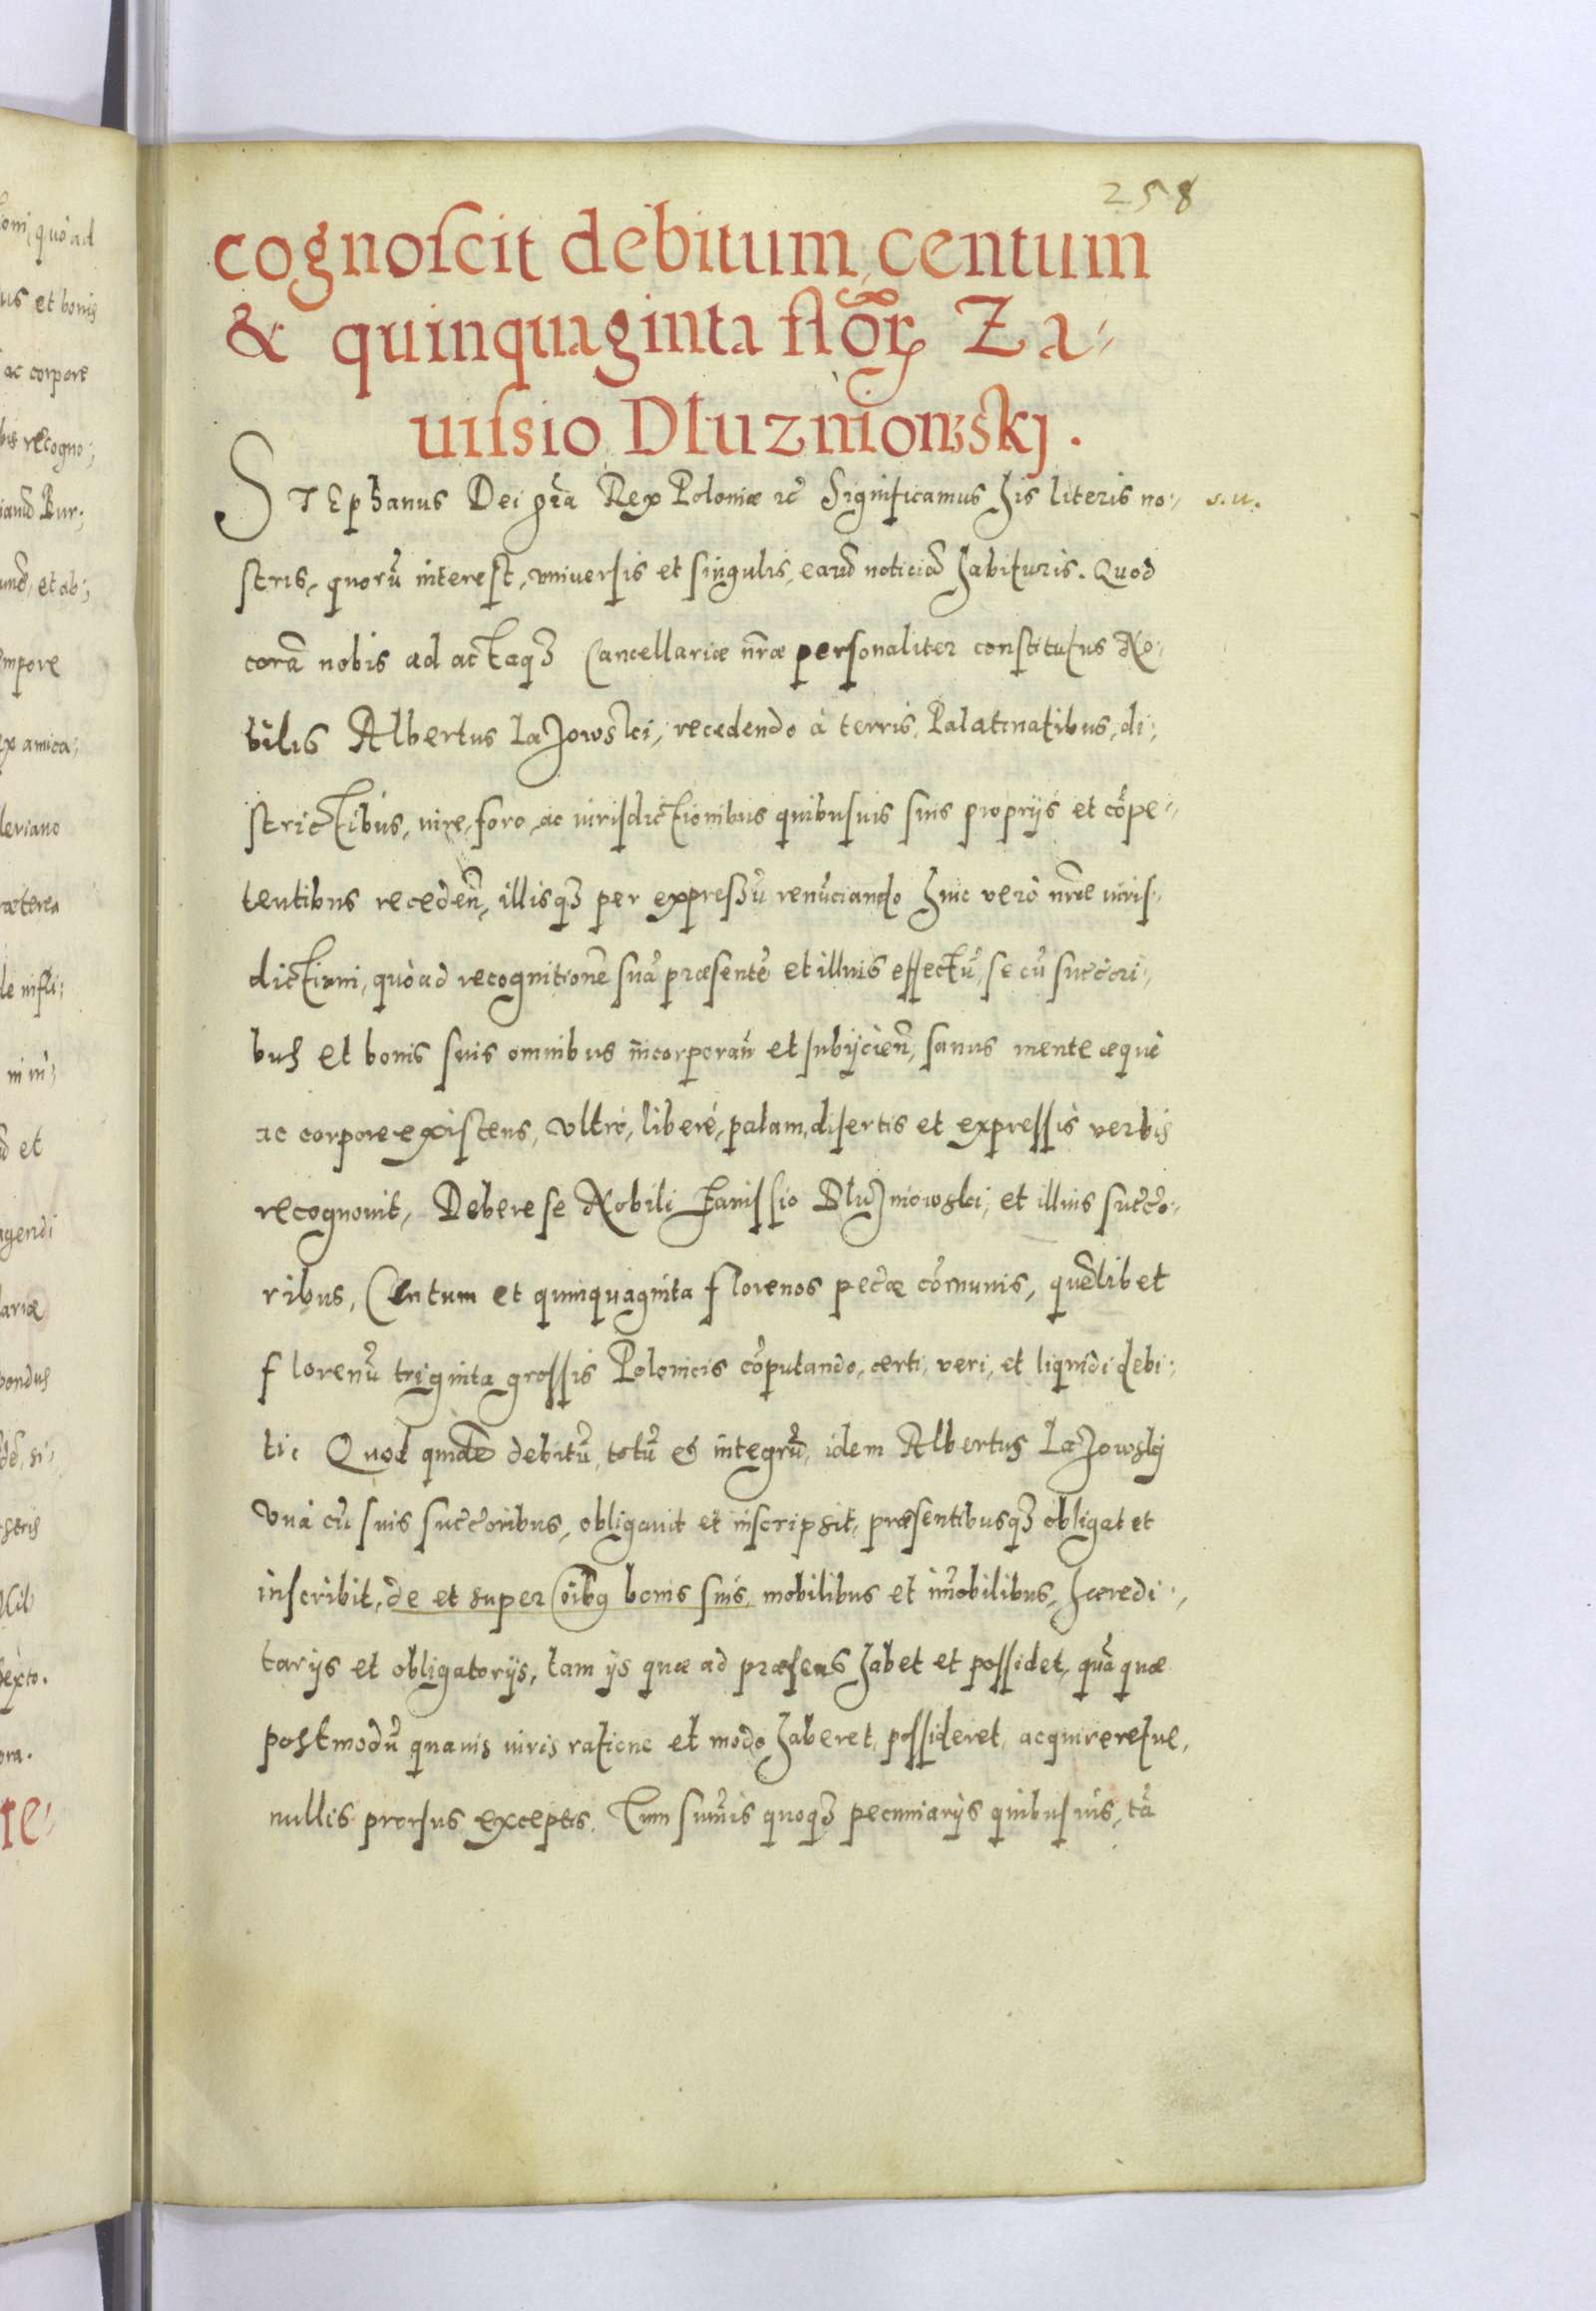 258
cognoscit debitum, centum
& quinquaginta floꝝ Za-
uissio Dluzniowskj.
STEphanus Dei gr̃a Rex Poloniæ ꝛc̃ Significamus his literis no- s. n.
stris, quorũ interest, vniuersis et singulis, eard̃ noticiã habituris. Quod
corã nobis ad actaqꝫ Cancellariæ nr̃æ personaliter constitutus No-
bilis Albertus Lazowski, recedendo à terris, Palatinatibus, di-
strictibus, iure, foro, ac iurisdictionibus quibusuis suis proprijs et cõpe-
tentibus receden̄, illisqꝫ per expressũ renũciando huic verò nr̃æ iuris-
dictioni, quò ad recognitionẽ suã præsentẽ et illius effectũ, se cũ succ̃ori-
bus et bonis suis omnibus incorporan̄ et subijcien̄, sanus mente æquè
ac corpore existens, vltrò, liberè, palam, disertis et expressis verbis
recognouit, Debere se Nobili Zauissio Dluzniowski, et illius succ̃o-
ribus, Centum et quinquaginta florenos pec̃æ cõmunis, quẽlibet
florenũ triginta grossis Polonicis cõputando, certi, veri, et liquidi debi-
ti: Quod quidẽ debitũ, totũ & integrũ, idem Albertus Lazowskj
vnà cũ suis succ̃oribus, obligauit et inscripsit, præsentibusqꝫ obligat et
inscribit, de et super oĩbꝯ bonis suis, mobilibus et im̃obilibus, hæredi-
tarijs et obligatorijs, tam ijs quæ ad præsens habet et possidet, quã quæ
postmodũ quauis iuris ratione et modo haberet, possideret, acquireretue,
nullis prorsus exceptis. Tum sum̃is quoqꝫ pecuniarijs quibusuis, tã